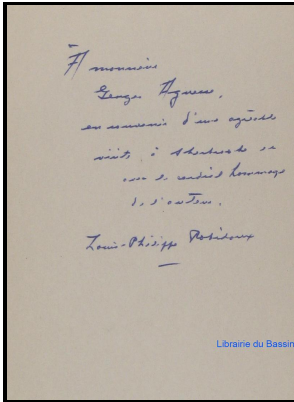 À monsieur
Georges Agneu,
en souvenir d'une agréable
visite à Sherbrooke et
avec le cordial hommage
de l'auteur.
Louis-Philippe Robidoux
Librairie du Bassin